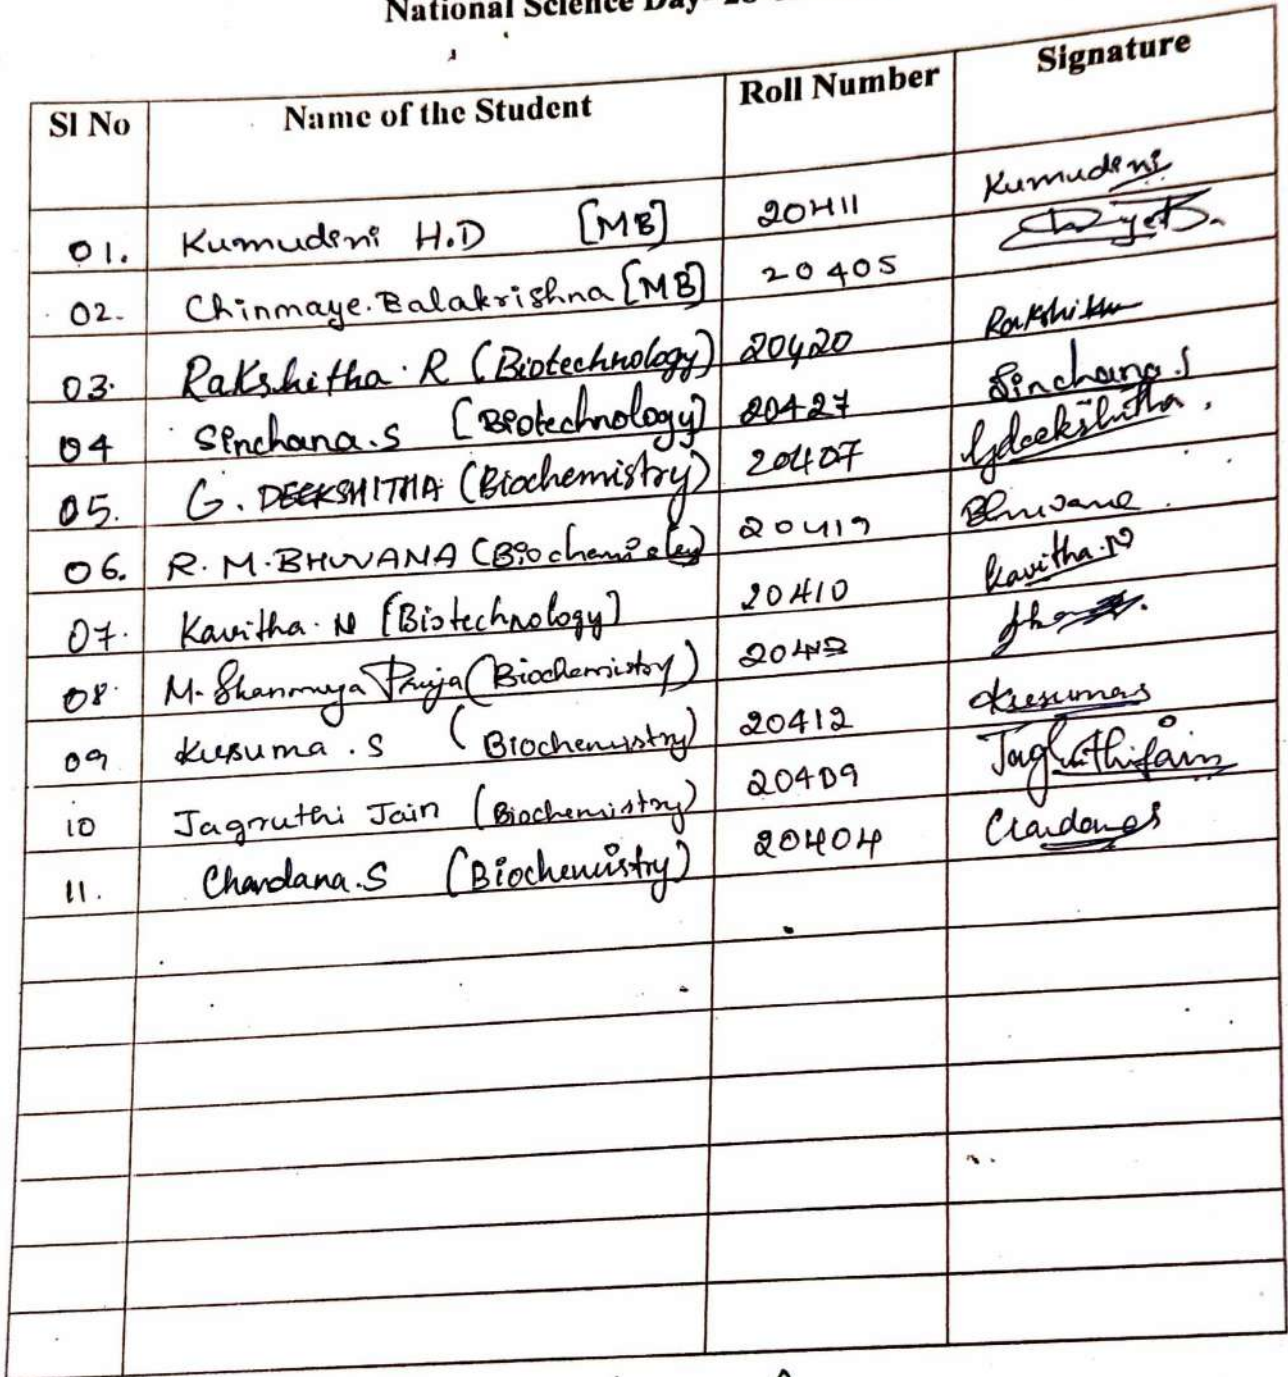 National Science Day
Sl No Name of the Student Roll Number Signature
01. Kumudini H.D [MB] 20411 Kumudini
02. Chinmaye.Balakrishna [MB] 20405
03. Rakshitha. R (Biotechnology) 20420 Rakshitha
04 Sinchana.S [Biotechnology] 20427 Sinchana.S
05. G. DEEKSHITHA (Biochemistry) 20407 Gdeekshitha
06. R. M. BHUVANA (Biochemistry) 20419 Bhuvana
07. Kavitha. N [Biotechnology] 20410 Kavitha.N
08. M. Shanmuga Priya (Biochemistry)
09 Kusuma .S (Biochemistry) 20412 Kusumas
10 Jagruthi Jain (Biochemistry) 20409 Jagruthi Jain
11. Chandana.S (Biochemistry) 20404 Chandanas